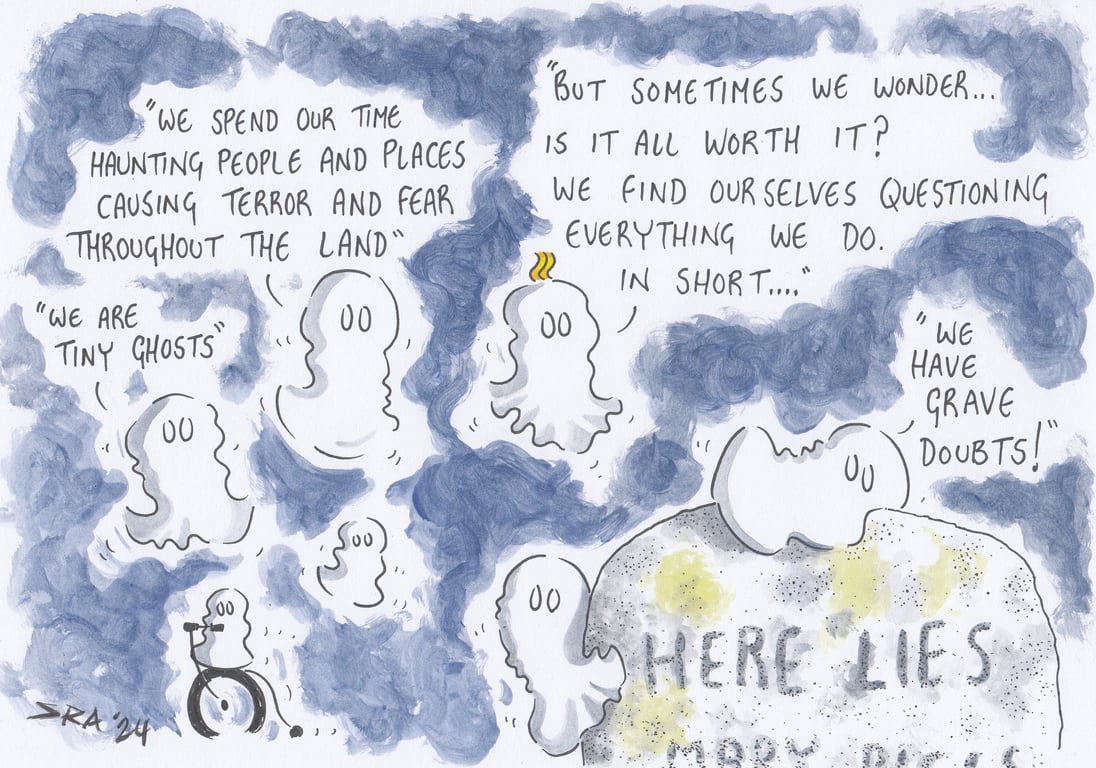 "WE ARE
TINY GHOSTS"
"WE SPEND OUR TIME
HAUNTING PEOPLE AND PLACES
CAUSING TERROR AND FEAR
THROUGHOUT THE LAND"
"BUT SOMETIMES WE WONDER...
IS IT ALL WORTH IT?
WE FIND OURSELVES QUESTIONING
EVERYTHING WE DO.
IN SHORT...."
"WE
HAVE
GRAVE
DOUBTS!"
HERE LIES
SRA '24